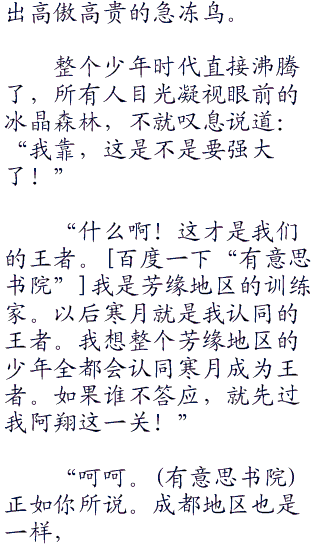 出高傲高贵的急冻鸟。
整个少年时代直接沸腾
了，所有人目光凝视眼前的
冰晶森林，不就叹息说道：
“我靠，这是不是要强大
了！”
“什么啊！这才是我们
的王者。[百度一下“有意思
书院”]我是芳缘地区的训练
家。以后寒月就是我认同的
王者。我想整个芳缘地区的
少年全都会认同寒月成为王
者。如果谁不答应，就先过
我阿翔这一关！”
“呵呵。(有意思书院)
正如你所说。成都地区也是
一样，